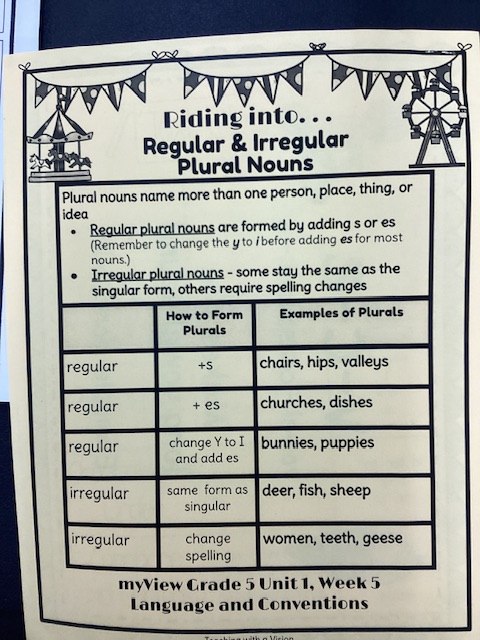 Riding into...
Regular & Irregular
Plural Nouns
Plural nouns name more than one person, place, thing, or
idea
• Regular plural nouns are formed by adding s or es
(Remember to change the y to i before adding es for most
nouns.)
• Irregular plural nouns - some stay the same as the
singular form, others require spelling changes
How to Form
Plurals
Examples of Plurals
regular
+s
chairs, hips, valleys
regular
+ es
churches, dishes
regular
change Y to I
and add es
bunnies, puppies
irregular
same form as
singular
deer, fish, sheep
irregular
change
spelling
women, teeth, geese
myView Grade 5 Unit 1, Week 5
Language and Conventions
Teaching with a Vision